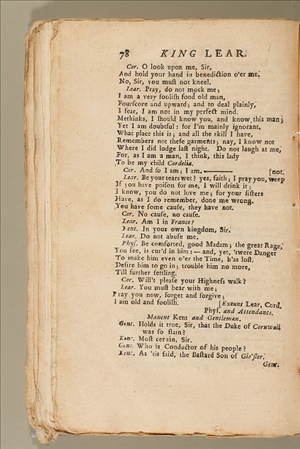 78 KING LEAR.
Cor. O look upon me, Sir,
And hold your hand in benediction o'er me,
No, Sir, you muſt not kneel.
Lear. Pray, do not mock me;
I am a very fooliſh fond old man,
Fourſcore and upward; and to deal plainly,
I fear, I am not in my perfect mind.
Methinks, I ſhould know you, and know this man;
Yet I am doubtful: for I'm mainly ignorant,
What place this is; and all the skill I have,
Remembers not theſe garments; nay, I know not
Where I did lodge laſt night. Do not laugh at me,
For, as I am a man, I think, this lady
To be my child Cordelia.
Cor. And ſo I am; I am. [not.
Lear. Be your tears wet? yes, faith; I pray you, weep
If you have poiſon for me, I will drink it;
I know, you do not love me; for your ſiſters
Have, as I do remember, done me wrong.
You have ſome cauſe, they have not.
Cor. No cauſe, no cauſe.
Lear. Am I in France?
Kent. In your own kingdom, Sir.
Lear. Do not abuſe me.
Phyſ. Be comforted, good Madam; the great Rage,
You ſee, is cur'd in him: and, yet, 'twere Danger
To make him even o'er the Time, h'as loſt.
Deſire him to go in; trouble him no more,
Till further ſettling.
Cor. Will't pleaſe your Highneſs walk?
Lear. You muſt bear with me;
Pray you now, forget and forgive;
I am old and fooliſh. [Exeunt Lear, Cord.
Phyſ. and Attendants.
Manent Kent and Gentleman.
Gent. Holds it true, Sir, that the Duke of Cornwall
was ſo ſlain?
Kent. Moſt certain, Sir.
Gent. Who is Conductor of his people?
Kent. As 'tis ſaid, the Baſtard Son of Glo'ſter.
Gent.